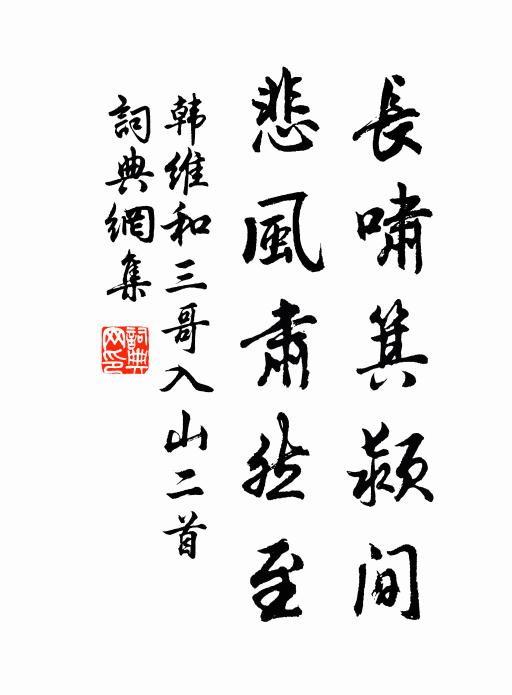 長嘯箕颍间
悲風肅然至
韩维和三哥入山二首
詞典網集
詞典网印